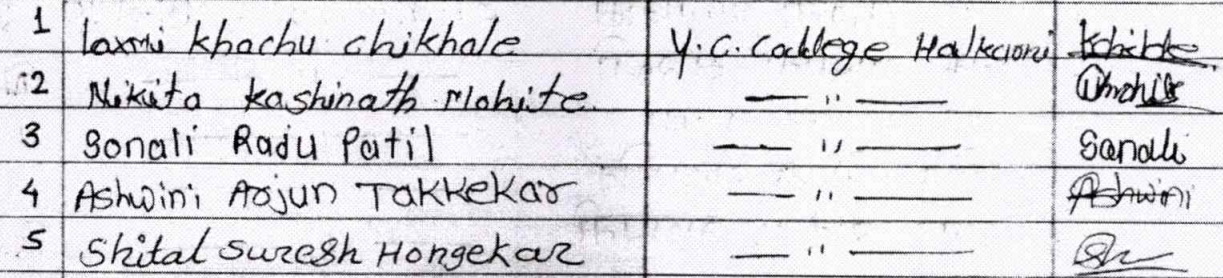 1 Laxmi Khachu Chikhale Y.C. Colllege Halkarni
2 Nikita Kashinath Mohite — " —
3 Sonali Raju Patil — " — Sonali
4 Ashwini Arjun Takkekar — " — Ashwini
5 Shital Suresh Hongekar — " —